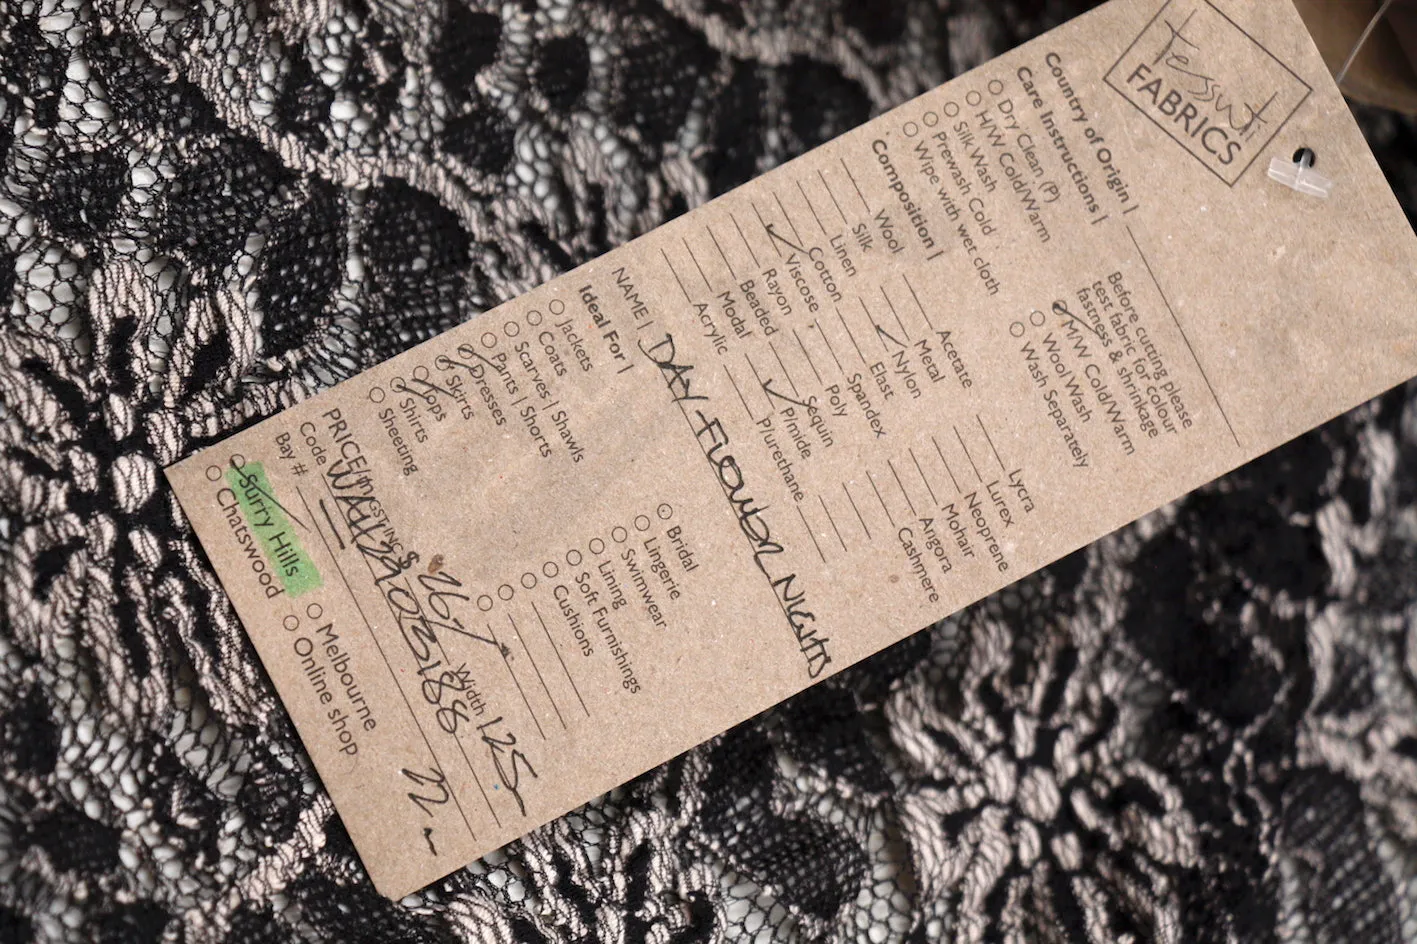 tessuti
FABRICS
Country of Origin |
Care Instructions |
Dry Clean (P)
H/W Cold/Warm
Silk Wash
Prewash Cold
Wipe with wet cloth
Before cutting please
test fabric for colour
fastness & shrinkage
M/W Cold/Warm
Wool Wash
Wash Separately
Composition |
Wool
Silk
Linen
Cotton
Viscose
Rayon
Beaded
Modal
Acrylic
Acetate
Metal
Nylon
Elast
Spandex
Poly
Sequin
P/mide
P/urethane
Lycra
Lurex
Neoprene
Mohair
Angora
Cashmere
NAME | DAY FLOWER NIGHTS
Ideal For |
Jackets
Coats
Scarves | Shawls
Pants | Shorts
Dresses
Skirts
Tops
Shirts
Sheeting
Bridal
Lingerie
Swimwear
Lining
Soft Furnishings
Cushions
Width 125
Code
Bay #
Surry Hills
Chatswood
Melbourne
Online shop